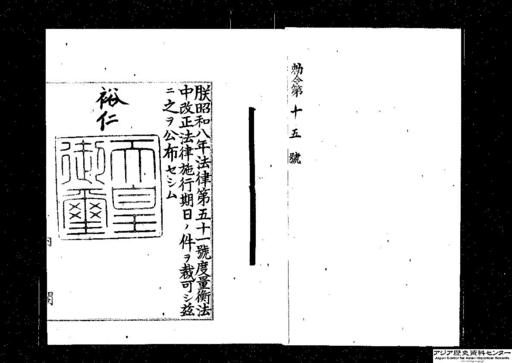 勅令第十五號
朕昭和八年法律第五十一號度量衡法
中改正法律施行期日ノ件ヲ裁可シ茲
ニ之ヲ公布セシム
裕仁
天皇
御璽
内閣
アジア歴史資料センター
Japan Center for Asian Historical Records